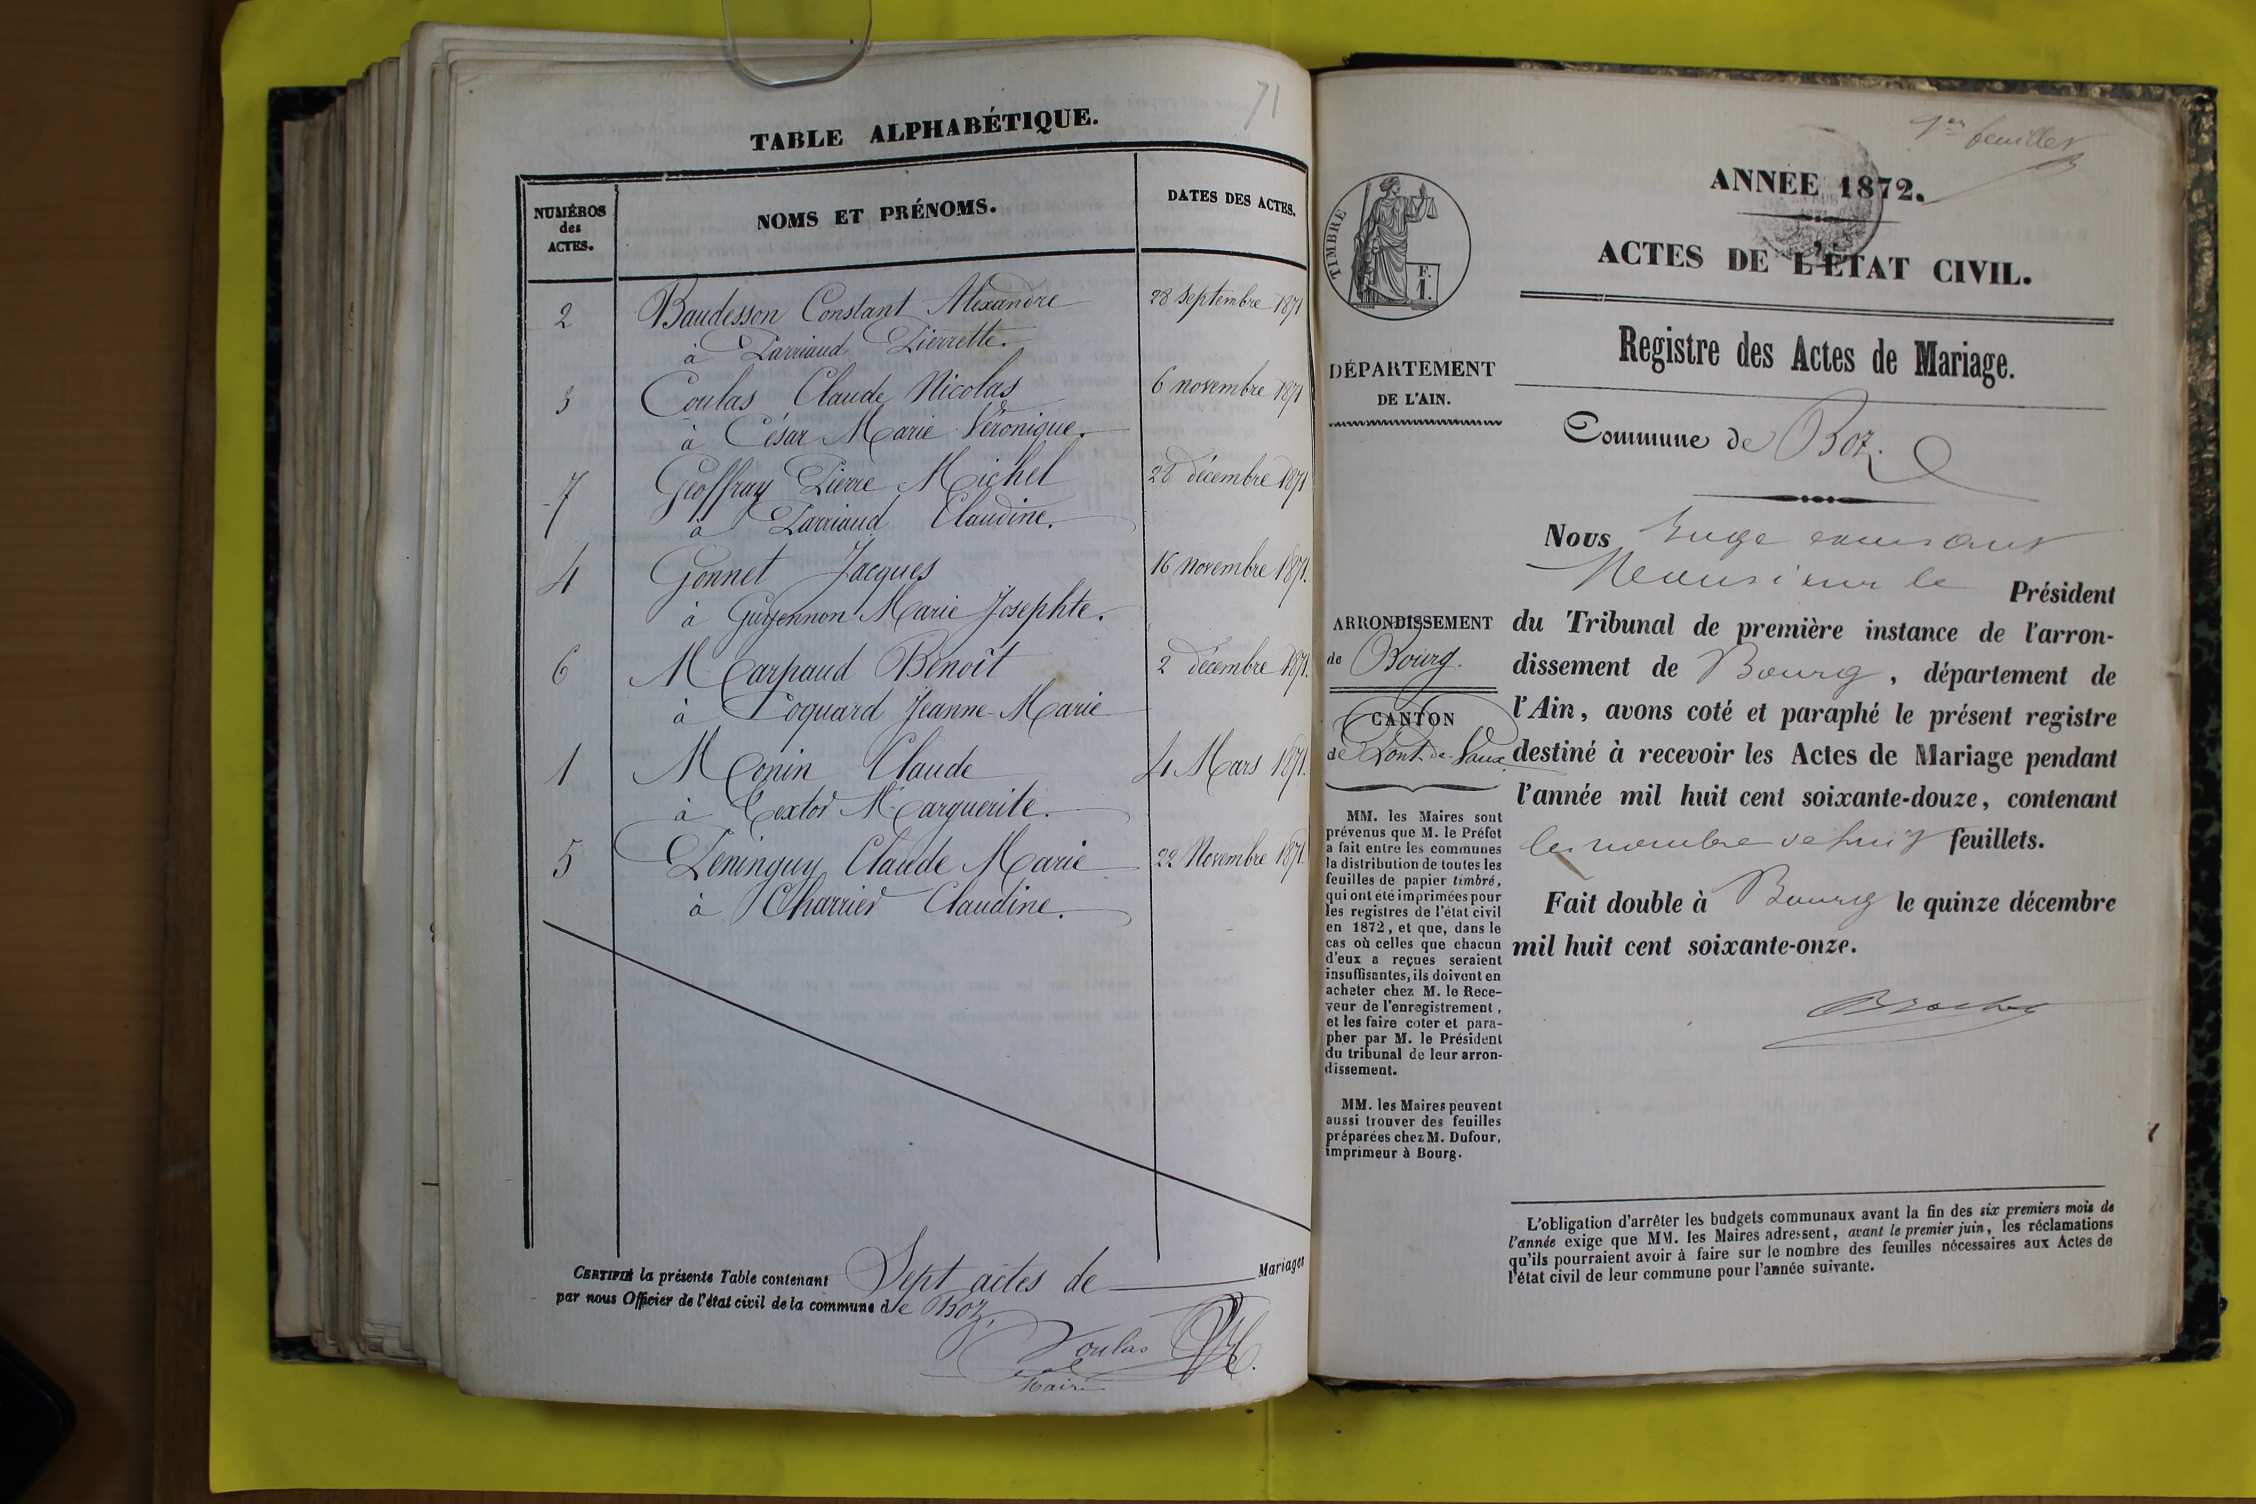 71
TABLE ALPHABÉTIQUE.
NUMÉROS
des
ACTES.
NOMS ET PRÉNOMS.
DATES DES ACTES.
2 Baudesson Constant Alexandre 28 septembre 1871
à Parriaud Pierrette.
3 Coulas Claude Nicolas 6 novembre 1871
à César Marie Véronique.
7 Geoffray Pierre Michel 28 décembre 1871
à Parriaud Claudine.
4 Gonnet Jacques 16 novembre 1871.
à Guyennon Marie Josephte.
6 Marpaud Benoît 2 décembre 1871.
à Poquard Jeanne-Marie
1 Monin Claude 4 Mars 1871.
à Textor Marguerite.
5 Peninguy Claude Marie 22 Novembre 1871.
à Charrier Claudine.
CERTIFIÉ la présente Table contenant Sept actes de Mariages
par nous Officier de l'état civil de la commune de Boz,
Coulas
Maire
1er feuillet
ANNÉE 1872.
ACTES DE L'ÉTAT CIVIL.
Registre des Actes de Mariage.
Commune de Boz.
TIMBRE
F.
1.
DÉPARTEMENT
DE L'AIN.
ARRONDISSEMENT
de Bourg.
CANTON
de Pont-de-Vaux.
MM. les Maires sont
prévenus que M. le Préfet
a fait entre les communes
la distribution de toutes les
feuilles de papier timbré,
qui ont été imprimées pour
les registres de l'état civil
en 1872, et que, dans le
cas où celles que chacun
d'eux a reçues seraient
insuffisantes, ils doivent en
acheter chez M. le Rece-
veur de l'enregistrement,
et les faire coter et para-
pher par M. le Président
du tribunal de leur arron-
dissement.
MM. les Maires peuvent
aussi trouver des feuilles
préparées chez M. Dufour,
imprimeur à Bourg.
Nous Juge
Monsieur le Président
du Tribunal de première instance de l'arron-
dissement de Bourg, département de
l'Ain, avons coté et paraphé le présent registre
destiné à recevoir les Actes de Mariage pendant
l'année mil huit cent soixante-douze, contenant
le nombre de huit feuillets.
Fait double à Bourg le quinze décembre
mil huit cent soixante-onze.
L'obligation d'arrêter les budgets communaux avant la fin des six premiers mois de
l'année exige que MM. les Maires adressent, avant le premier juin, les réclamations
qu'ils pourraient avoir à faire sur le nombre des feuilles nécessaires aux Actes de
l'état civil de leur commune pour l'année suivante.